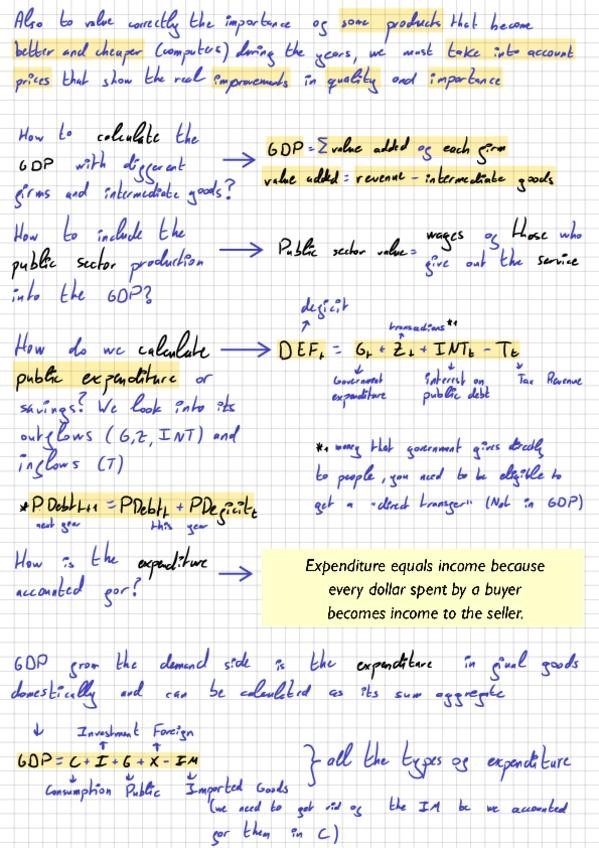 Also to value correctly the importance of some products that become
better and cheaper (computers) during the years, we must take into account
prices that show the real improvements in quality and importance
How to calculate the
GDP with different
firms and intermediate goods?
GDP = Σ value added of each firm
value added = revenue - intermediate goods
How to include the
public sector production
into the GDP?
Public sector value = wages of those who
give out the service
How do we calculate
public expenditure or
savings? We look into its
outflows (G,Z,INT) and
inflows (T)
deficit
transactions *1
DEFₜ = Gₜ + Zₜ + INTₜ - Tₜ
Government
expenditure
interest on
public debt
Tax Revenue
*1 money that government gives directly
to people, you need to be eligible to
get a "direct transfer" (Not in GDP)
*PDebtₜ₊₁ = PDebtₜ + PDeficitₜ
next year this year
How is the expenditure
accounted for?
Expenditure equals income because
every dollar spent by a buyer
becomes income to the seller.
GDP from the demand side is the expenditure in final goods
domestically and can be calculated as its sum aggregate
Investment Foreign
GDP = C + I + G + X - IM
Consumption Public Imported Goods
} all the types of expenditure
(we need to get rid of the IM bc we accounted
for them in C)